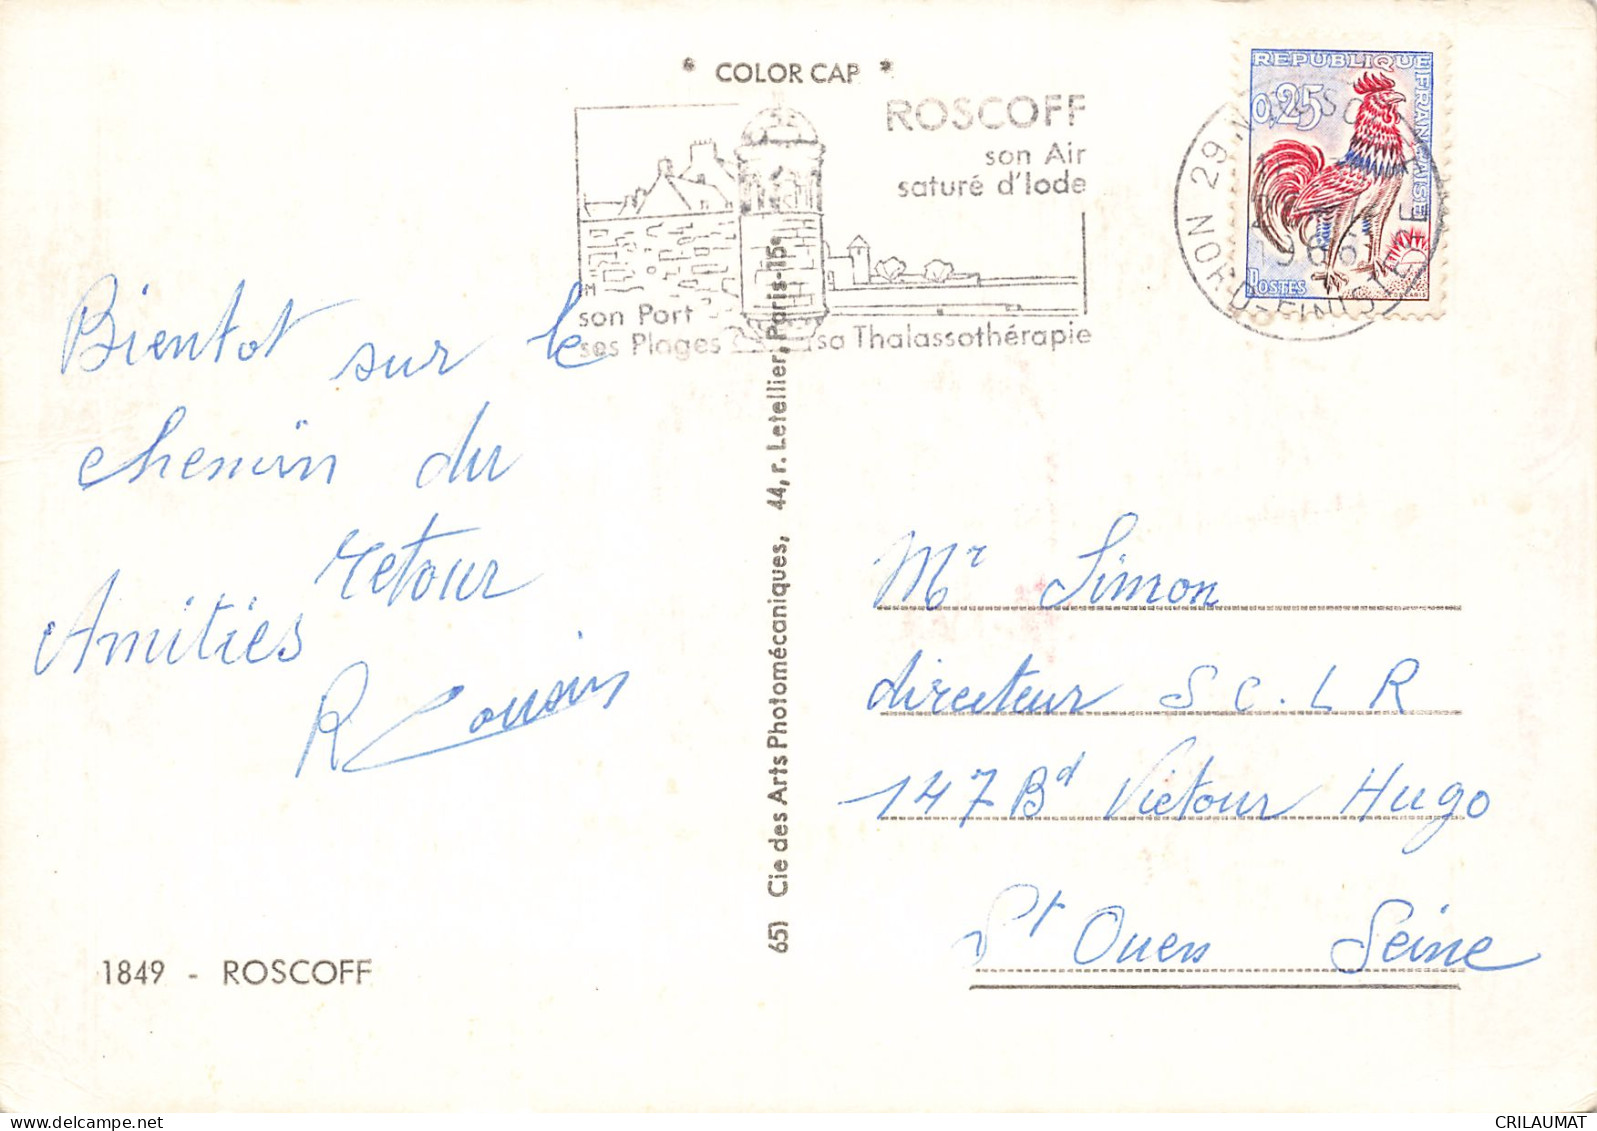 COLOR CAP
ROSCOFF
son Air
saturé d'Iode
son Port
ses Plages sa Thalassothérapie
REPUBLIQUE FRANÇAISE
0,25
POSTES
DECARIS
29
1966
NORD-FINISTERE
Bientot sur le
chemin du
retour
Amitiés
R Cousin
1849 - ROSCOFF
651 Cie des Arts Photomécaniques, 44, r. Letellier, Paris-15e
Mr Simon
directeur S C. L R
147 Bd Victour Hugo
St Ouen Seine
CRILAUMAT